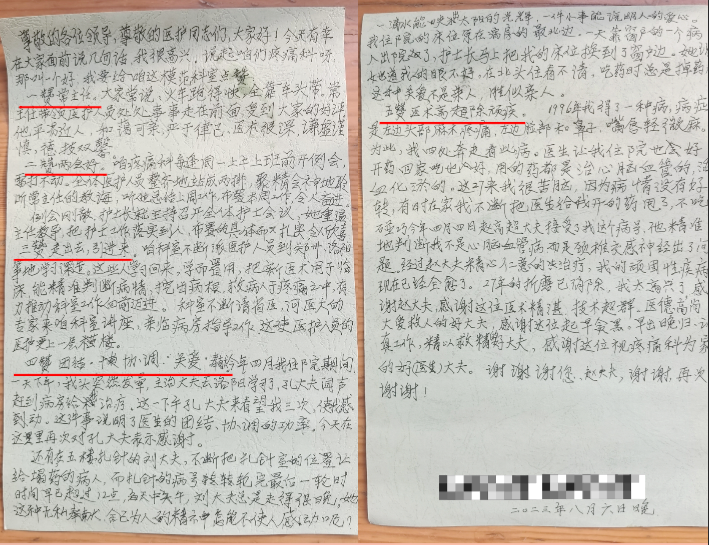 尊敬的各位领导,尊敬的医护同志们,大家好!今天有幸
在大家面前说几句话,我很高兴,说起咱们疼痛科呀,
那叫个好,我要给咱这模范科室五赞
一赞常主任,大家常说,火车跑得快,全靠车头带,常
主任带领医护人员处处事事走在前面,受到大家的好评
他平易近人,和蔼可亲,严于律己,医术极深,谦虚谨
慎,德技双馨
二赞两会好,咱疼痛科每逢周一上班前开例会,
雷打不动。全体医护人员整齐地站成两排,聚精会神地聆
听常主任的教诲,听他总结上周工作,布置本周工作,令人
例会刚散,护士长就主持召开全体护士会议,她重温
主任教导,把护士工作落实到人,布置的具体而又扎实
三赞走出去,引进来,咱科室不断派医护人员到郑州,洛阳
等地学习深造,这些人学习回来,学而善用,把新医术用于临
床,能精准判断病情,挖出病根,救病人于疼痛之中,有
力推动科室工作向前迈进。科室不断请省医,河医大的
专家来咱科室讲座,来临病房指导工作,这使医护人员的
医护更上一层楼
四赞团结·协调·关爱,我今年四月我住院期间,
一天下午,我头突然发晕,主治大夫去洛阳学习了,孔大夫闻声
赶到病房给我治疗,这一下午孔大夫来看望我三次,使我感
到动。这件事说明了医生的团结、协调的功率,今天在
这里再次对孔大夫表示感谢。
还有五楼扎针的刘大夫,不断把扎针室的位置让
给喝药的病人,而扎针的病号转转轮完最后一轮时
时间早已超过12点,每天中午,刘大夫总是走得很晚,她
这种无私奉献,舍己为人的精神怎能不使人感动呢?
一滴水能映出太阳的光辉,一件小事能说明人的爱心。
我住院的床位原在病房的最北边,一天靠窗户的一个病
人出院啦了,护士长马上把我的床位换到了窗户边。她说
她道我的眼不好,在北头住看不清,吃药时总是掉药
这种关爱不是亲人,胜似亲人。
五赞医术高超除顽疾 1996我得了一种病,病症
是左边头部麻木疼痛,左边脸部和鼻子,嘴唇轻微麻。
为此,我四处奔走看此病。医生让我住院也含好
开药回家吃也含好,用的药都是治心脑血管的活
血化淤的,这可来我很苦恼,因为病情没有好
转,有时在家我不断把医生给我开的药甩了,不吃
万幸巧今年四月四赵高超大夫接受我这个病号,他精准
地判断我不是心脑血管病而是颈椎交感神经出了问
题,经过赵大夫精心仁意的治疗,我的顽固性疾病
现在已经全愈了。27年的折磨已消除,我太高兴了感
谢赵大夫,感谢这位医术精湛,技术超群。医德高尚
大爱救人的好大夫,感谢这位起早贪黑,早出晚归,认
真工作,精心救精的大夫,感谢这位视疼痛科为家
的好(医生)大夫。谢谢谢谢您,赵大夫,谢谢,再次
谢谢!
二〇二三年八月六日晚